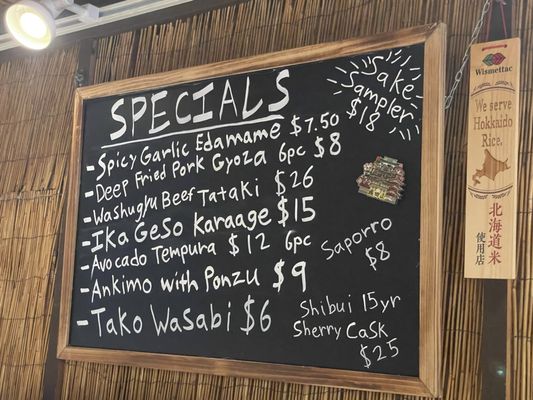 SPECIALS
- Spicy Garlic Edamame $7.50
- Deep Fried Pork Gyoza 6pc $8
- Washugyu Beef Tataki $26
- Ika Geso Karaage $15
- Avocado Tempura $12 6pc
- Ankimo with Ponzu $9
- Tako Wasabi $6
Sake
Sampler
$18
Saporro
$8
Shibui 15yr
Sherry Cask
$25
Wismettac
We serve
Hokkaido
Rice.
北海道米
使用店